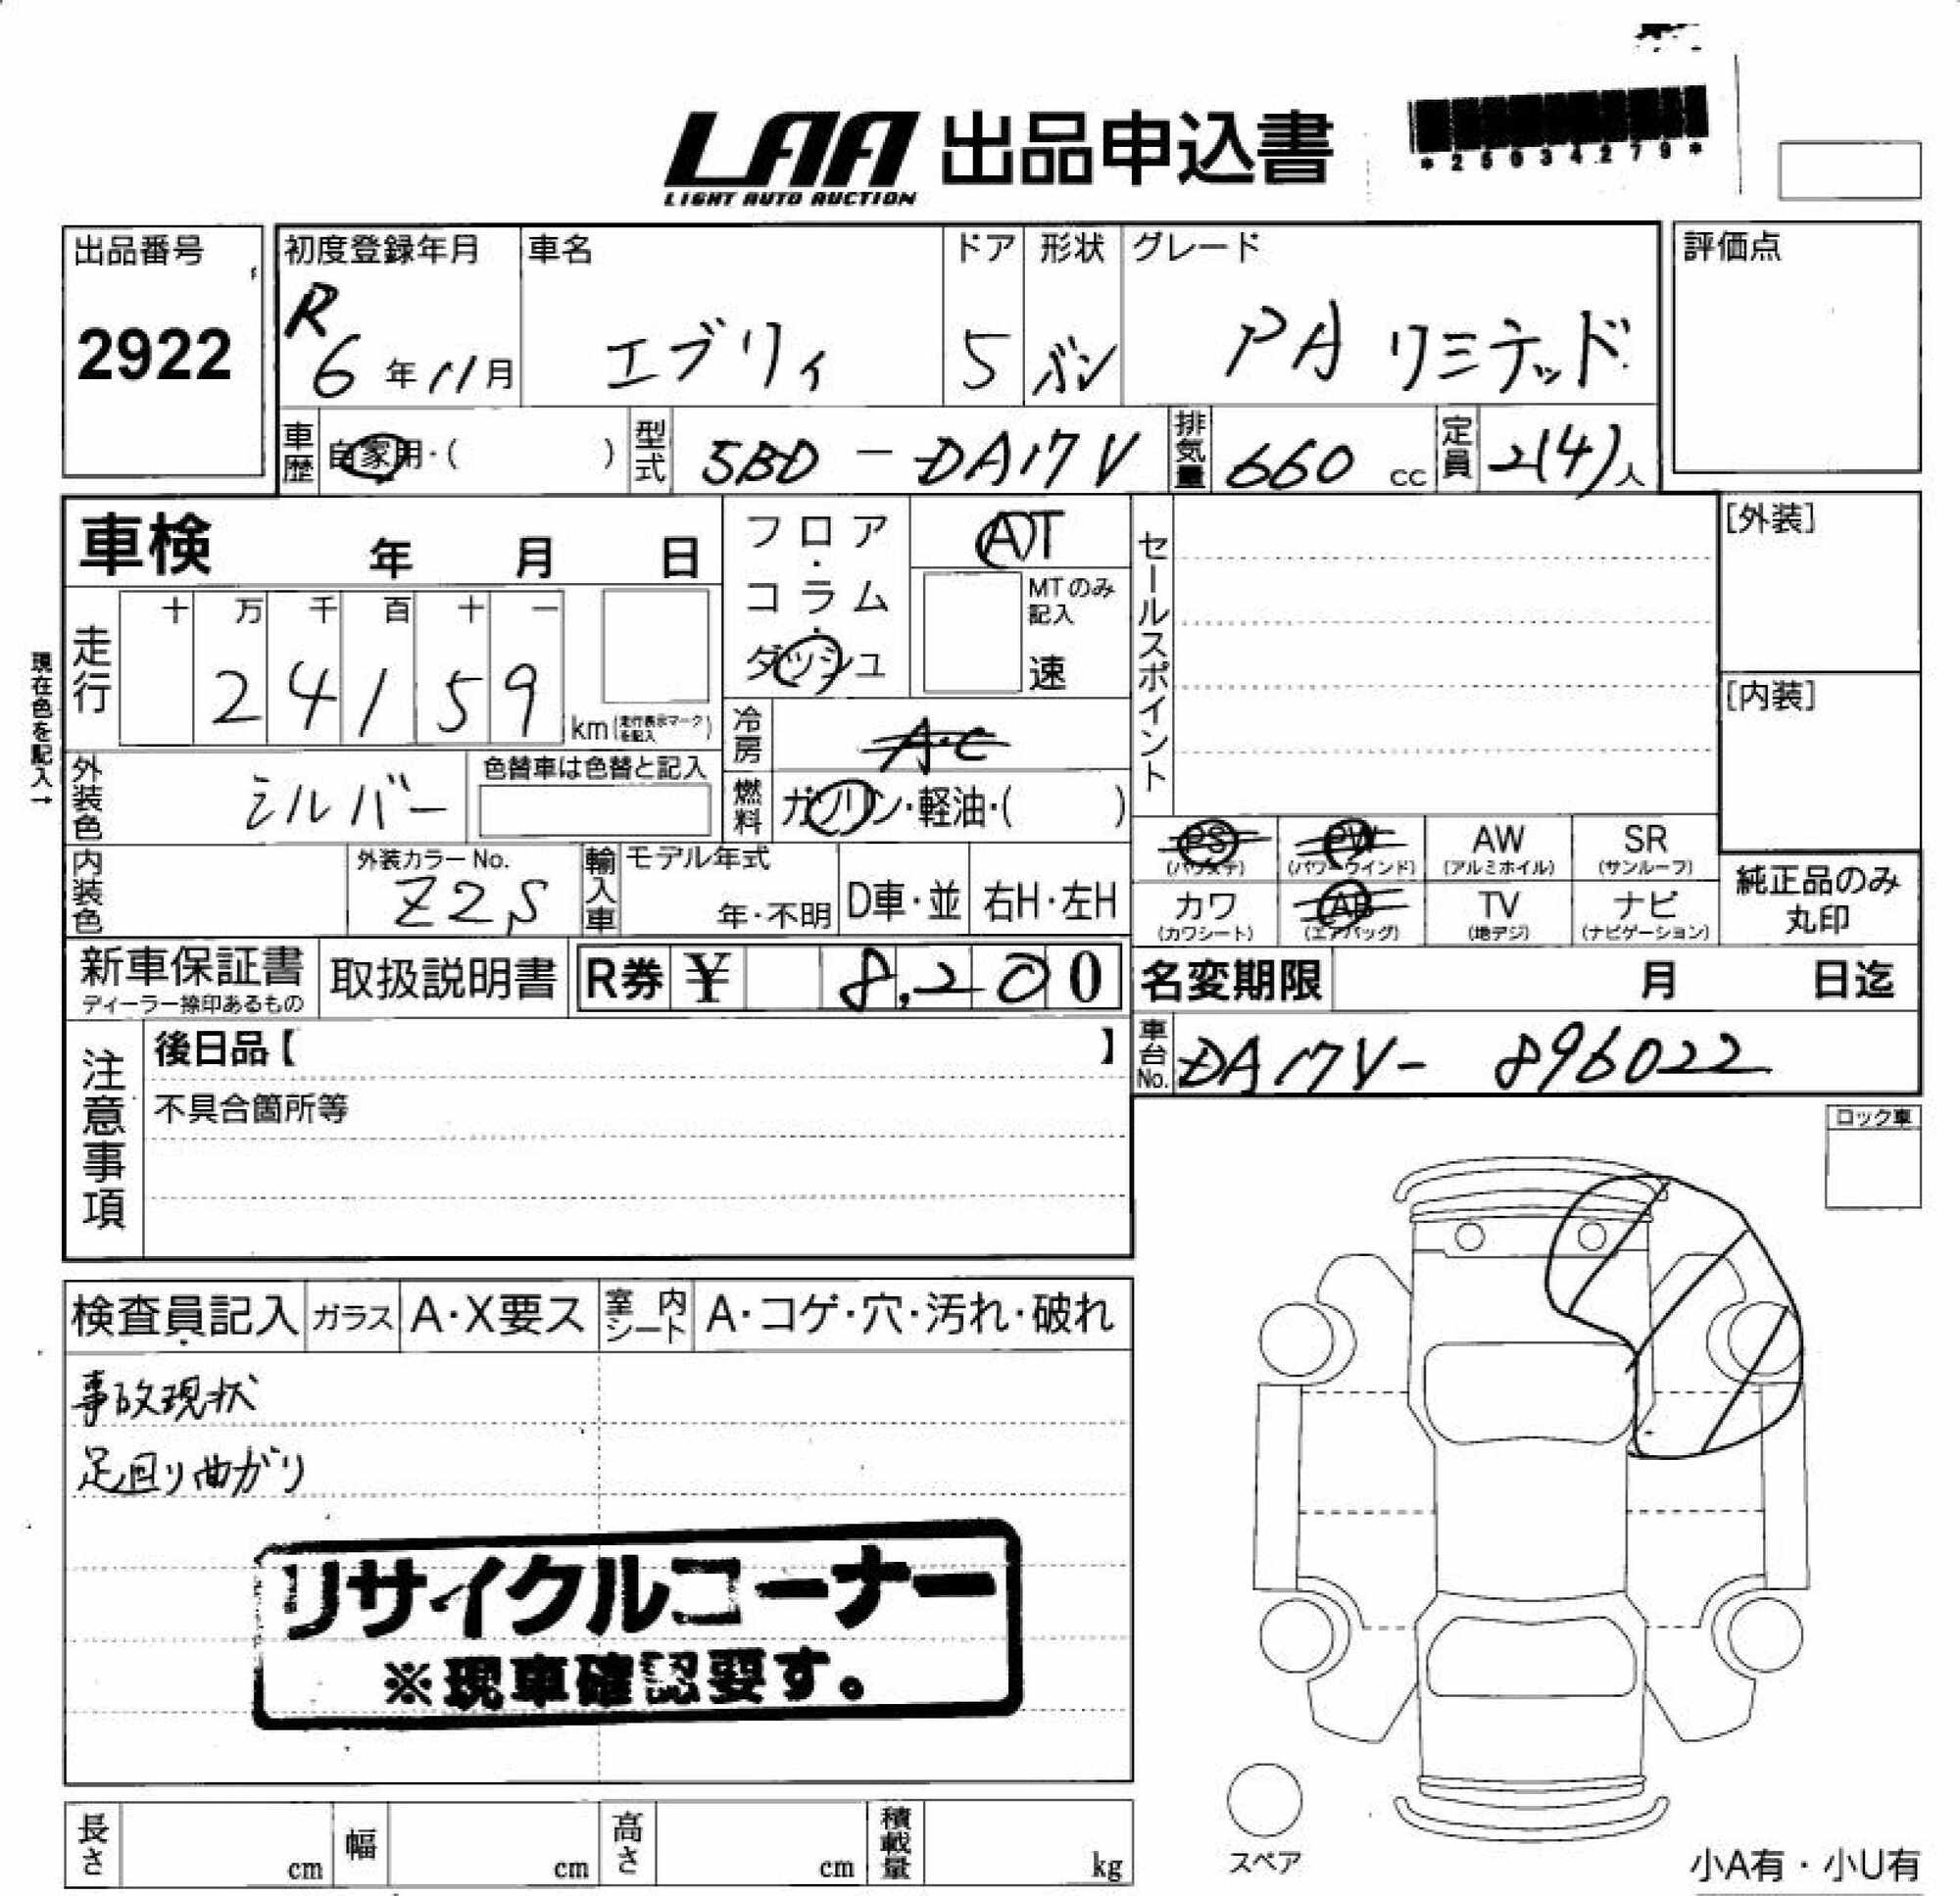 LAA 出品申込書
LIGHT AUTO AUCTION
*25034279*
出品番号
2922
初度登録年月
R
6年11月
車名
エブリィ
ドア
5
形状
バン
グレード
PA リミテッド
評価点
車歴
自家用・( )
型式
5BD - DA17V
排気量
660 cc
定員
2(4)人
車検 年 月 日
フロア・コラム・ダッシュ
AT
MTのみ記入
速
セールスポイント
[外装]
[内装]
現在色を記入→
走行
十 万 千 百 十 一
2 4 1 5 9
km(走行表示マークを記入)
冷房
A・C
燃料
ガソリン・軽油・( )
外装色
シルバー
色替車は色替と記入
PS
(パワステ)
PW
(パワーウインド)
AW
(アルミホイル)
SR
(サンルーフ)
カワ
(カワシート)
AB
(エアバッグ)
TV
(地デジ)
ナビ
(ナビゲーション)
純正品のみ
丸印
内装色
外装カラーNo.
Z2S
輸入車
モデル年式
年・不明
D車・並
右H・左H
新車保証書
ディーラー捺印あるもの
取扱説明書
R券 ¥ 8,200
名変期限 月 日迄
車台No.
DA17V- 896022
注意事項
後日品【 】
不具合箇所等
ロック車
検査員記入
ガラス
A・X要ス
室内シート
A・コゲ・穴・汚れ・破れ
事故現状
足回り曲がり
リサイクルコーナー
※現車確認要す。
長さ cm
幅 cm
高さ cm
積載量 kg
スペア
小A有・小U有